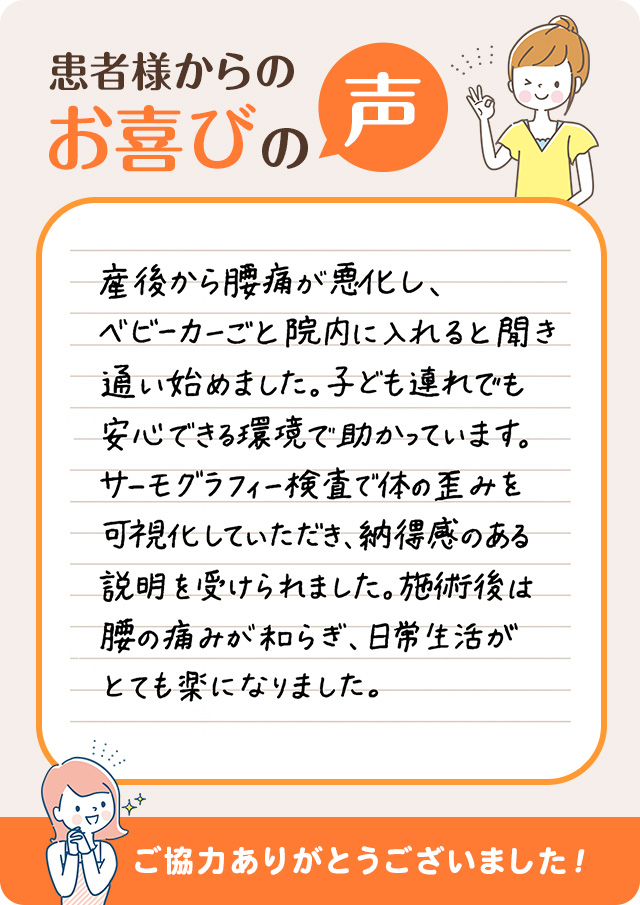 患者様からの
お喜びの声
産後から腰痛が悪化し、
ベビーカーごと院内に入れると聞き
通い始めました。子ども連れでも
安心できる環境で助かっています。
サーモグラフィー検査で体の歪みを
可視化していただき、納得感のある
説明を受けられました。施術後は
腰の痛みが和らぎ、日常生活が
とても楽になりました。
ご協力ありがとうございました！